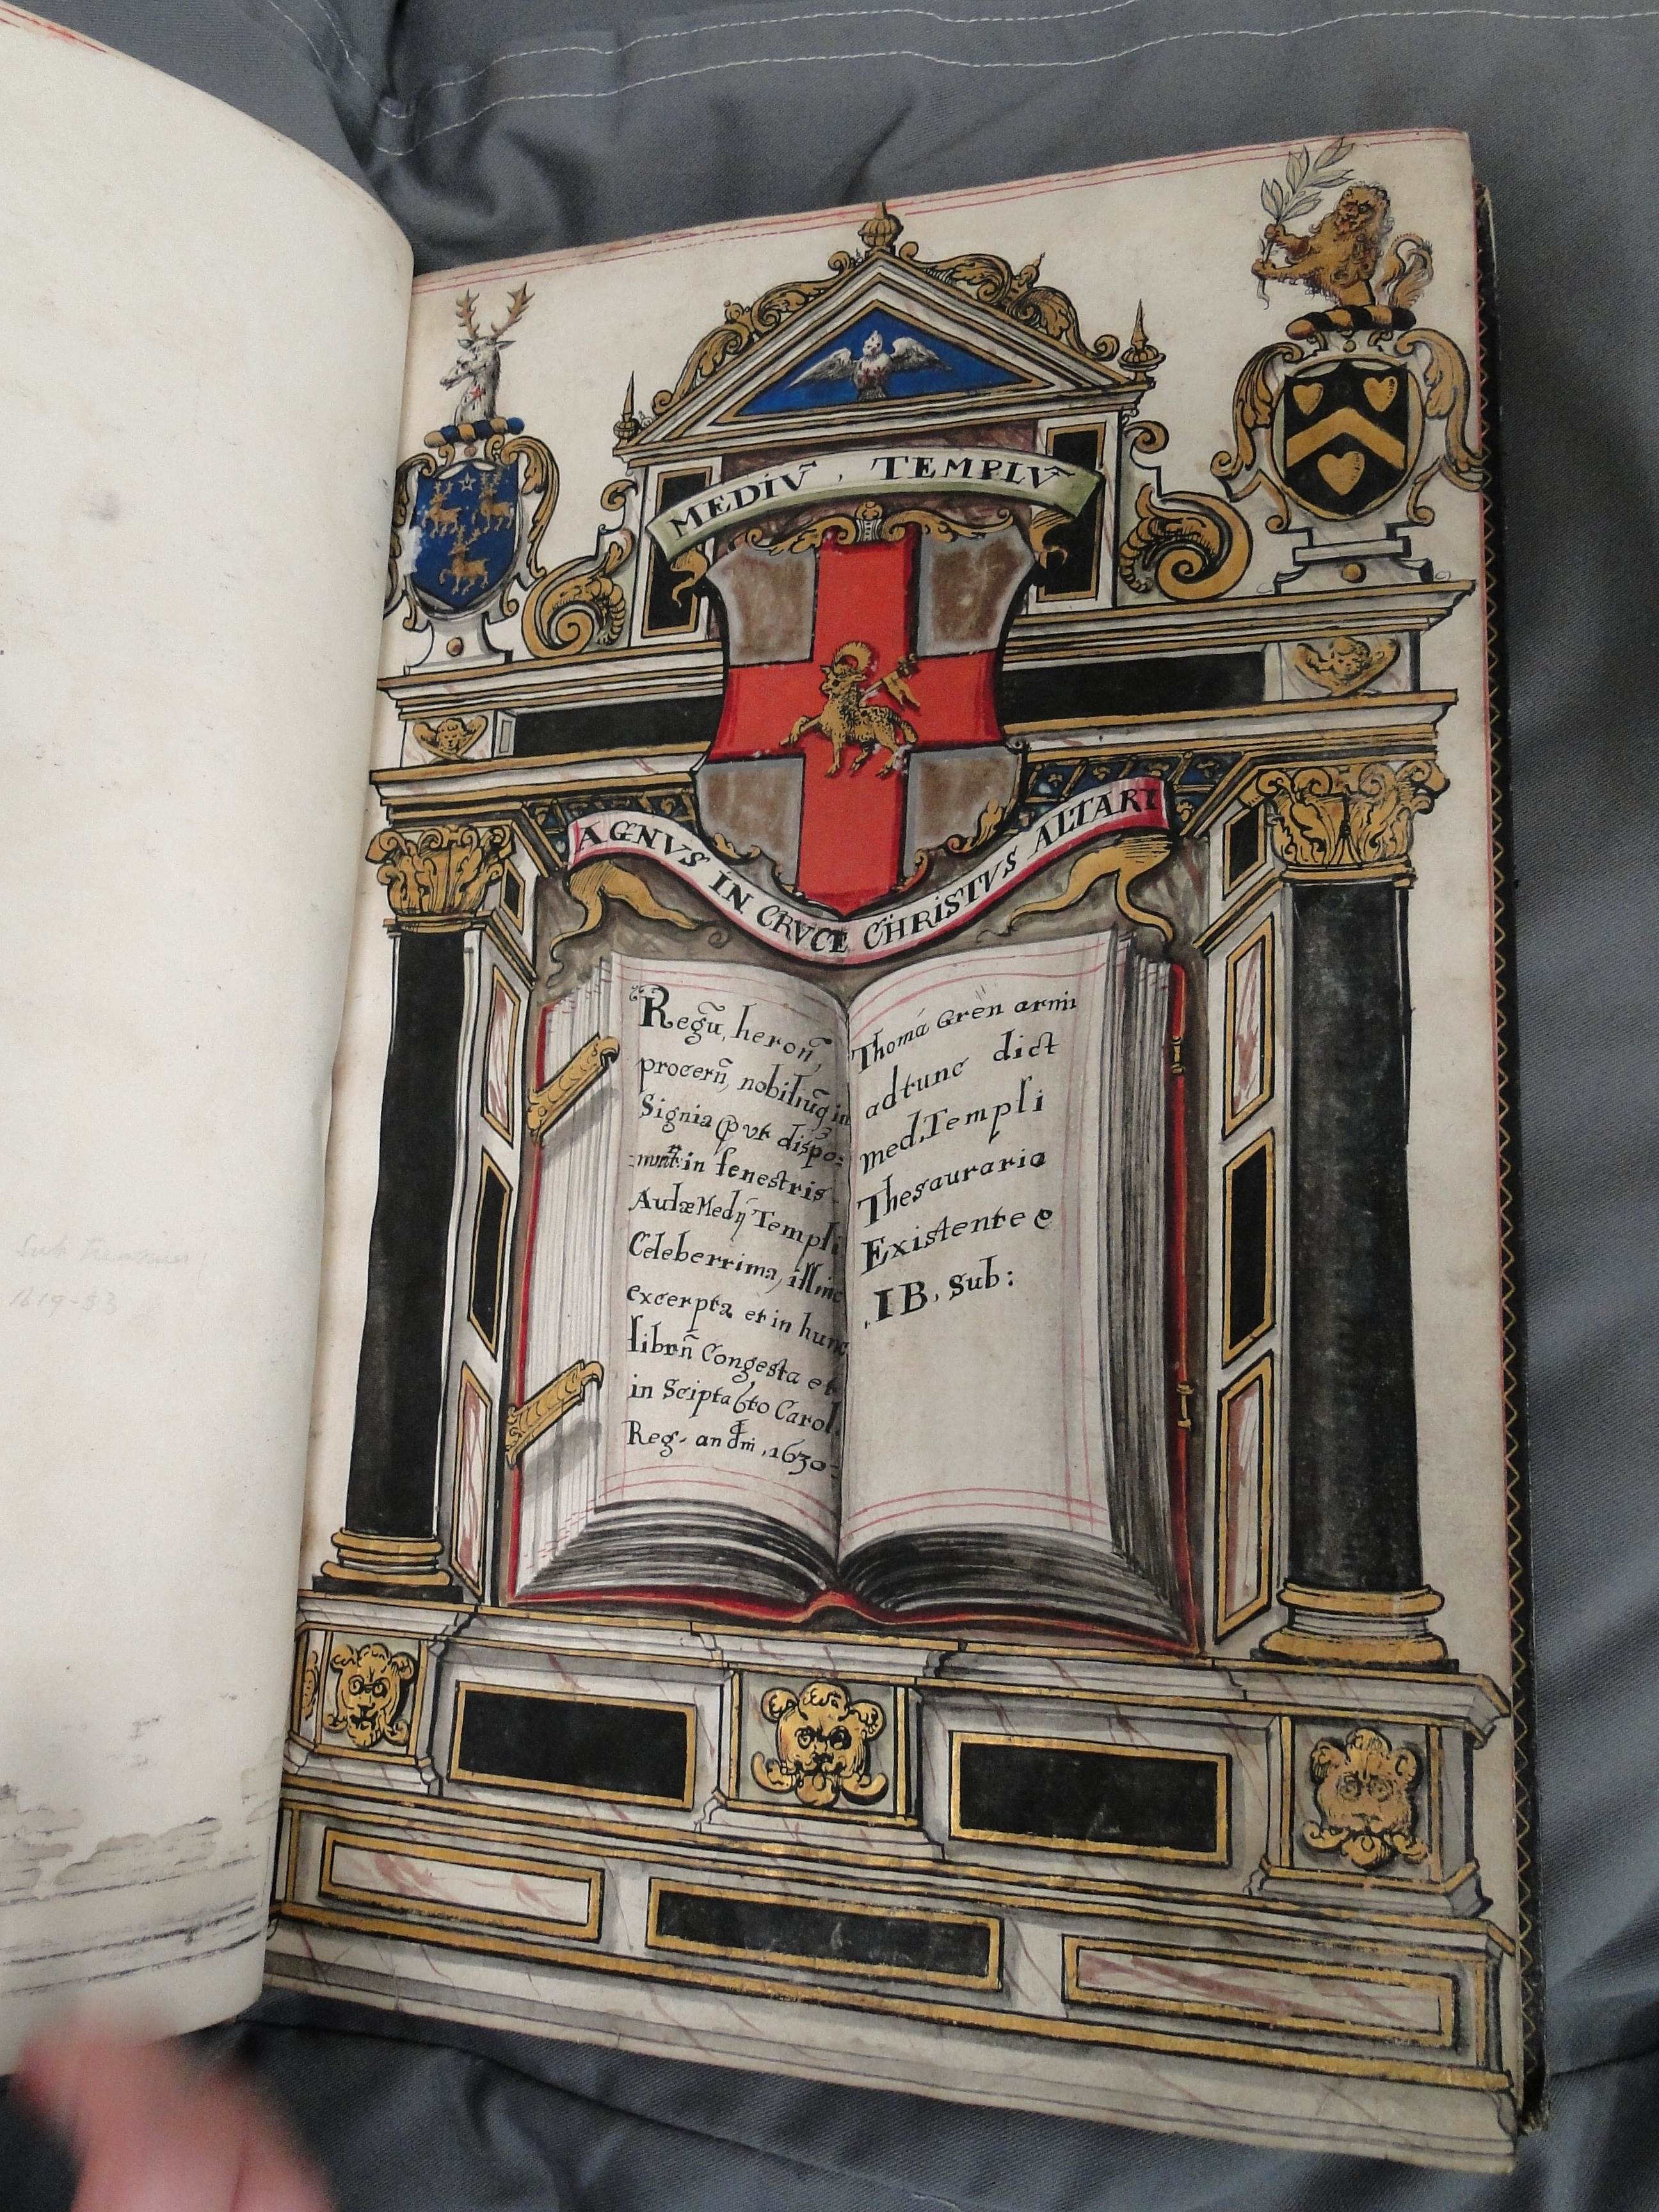 MEDIŪ, TEMPLŪ
AGNVS IN CRVCE CHRISTVS ALTARI
Regū, heroñ,
procerñ, nobiliūq in
Signia ꝓut dispo:
in fenestris
Aulæ Medij Templi
Celeberrima, illinc
excerpta et in hunc
librñ Congesta et
in Scipta 6to Carol.
Reg. an dm̄, 1630
Thomá Gren armi
adtunc dict
med. Templi
Thesauraria
Existente &
IB. Sub:
Sub Treasurer
1619-53